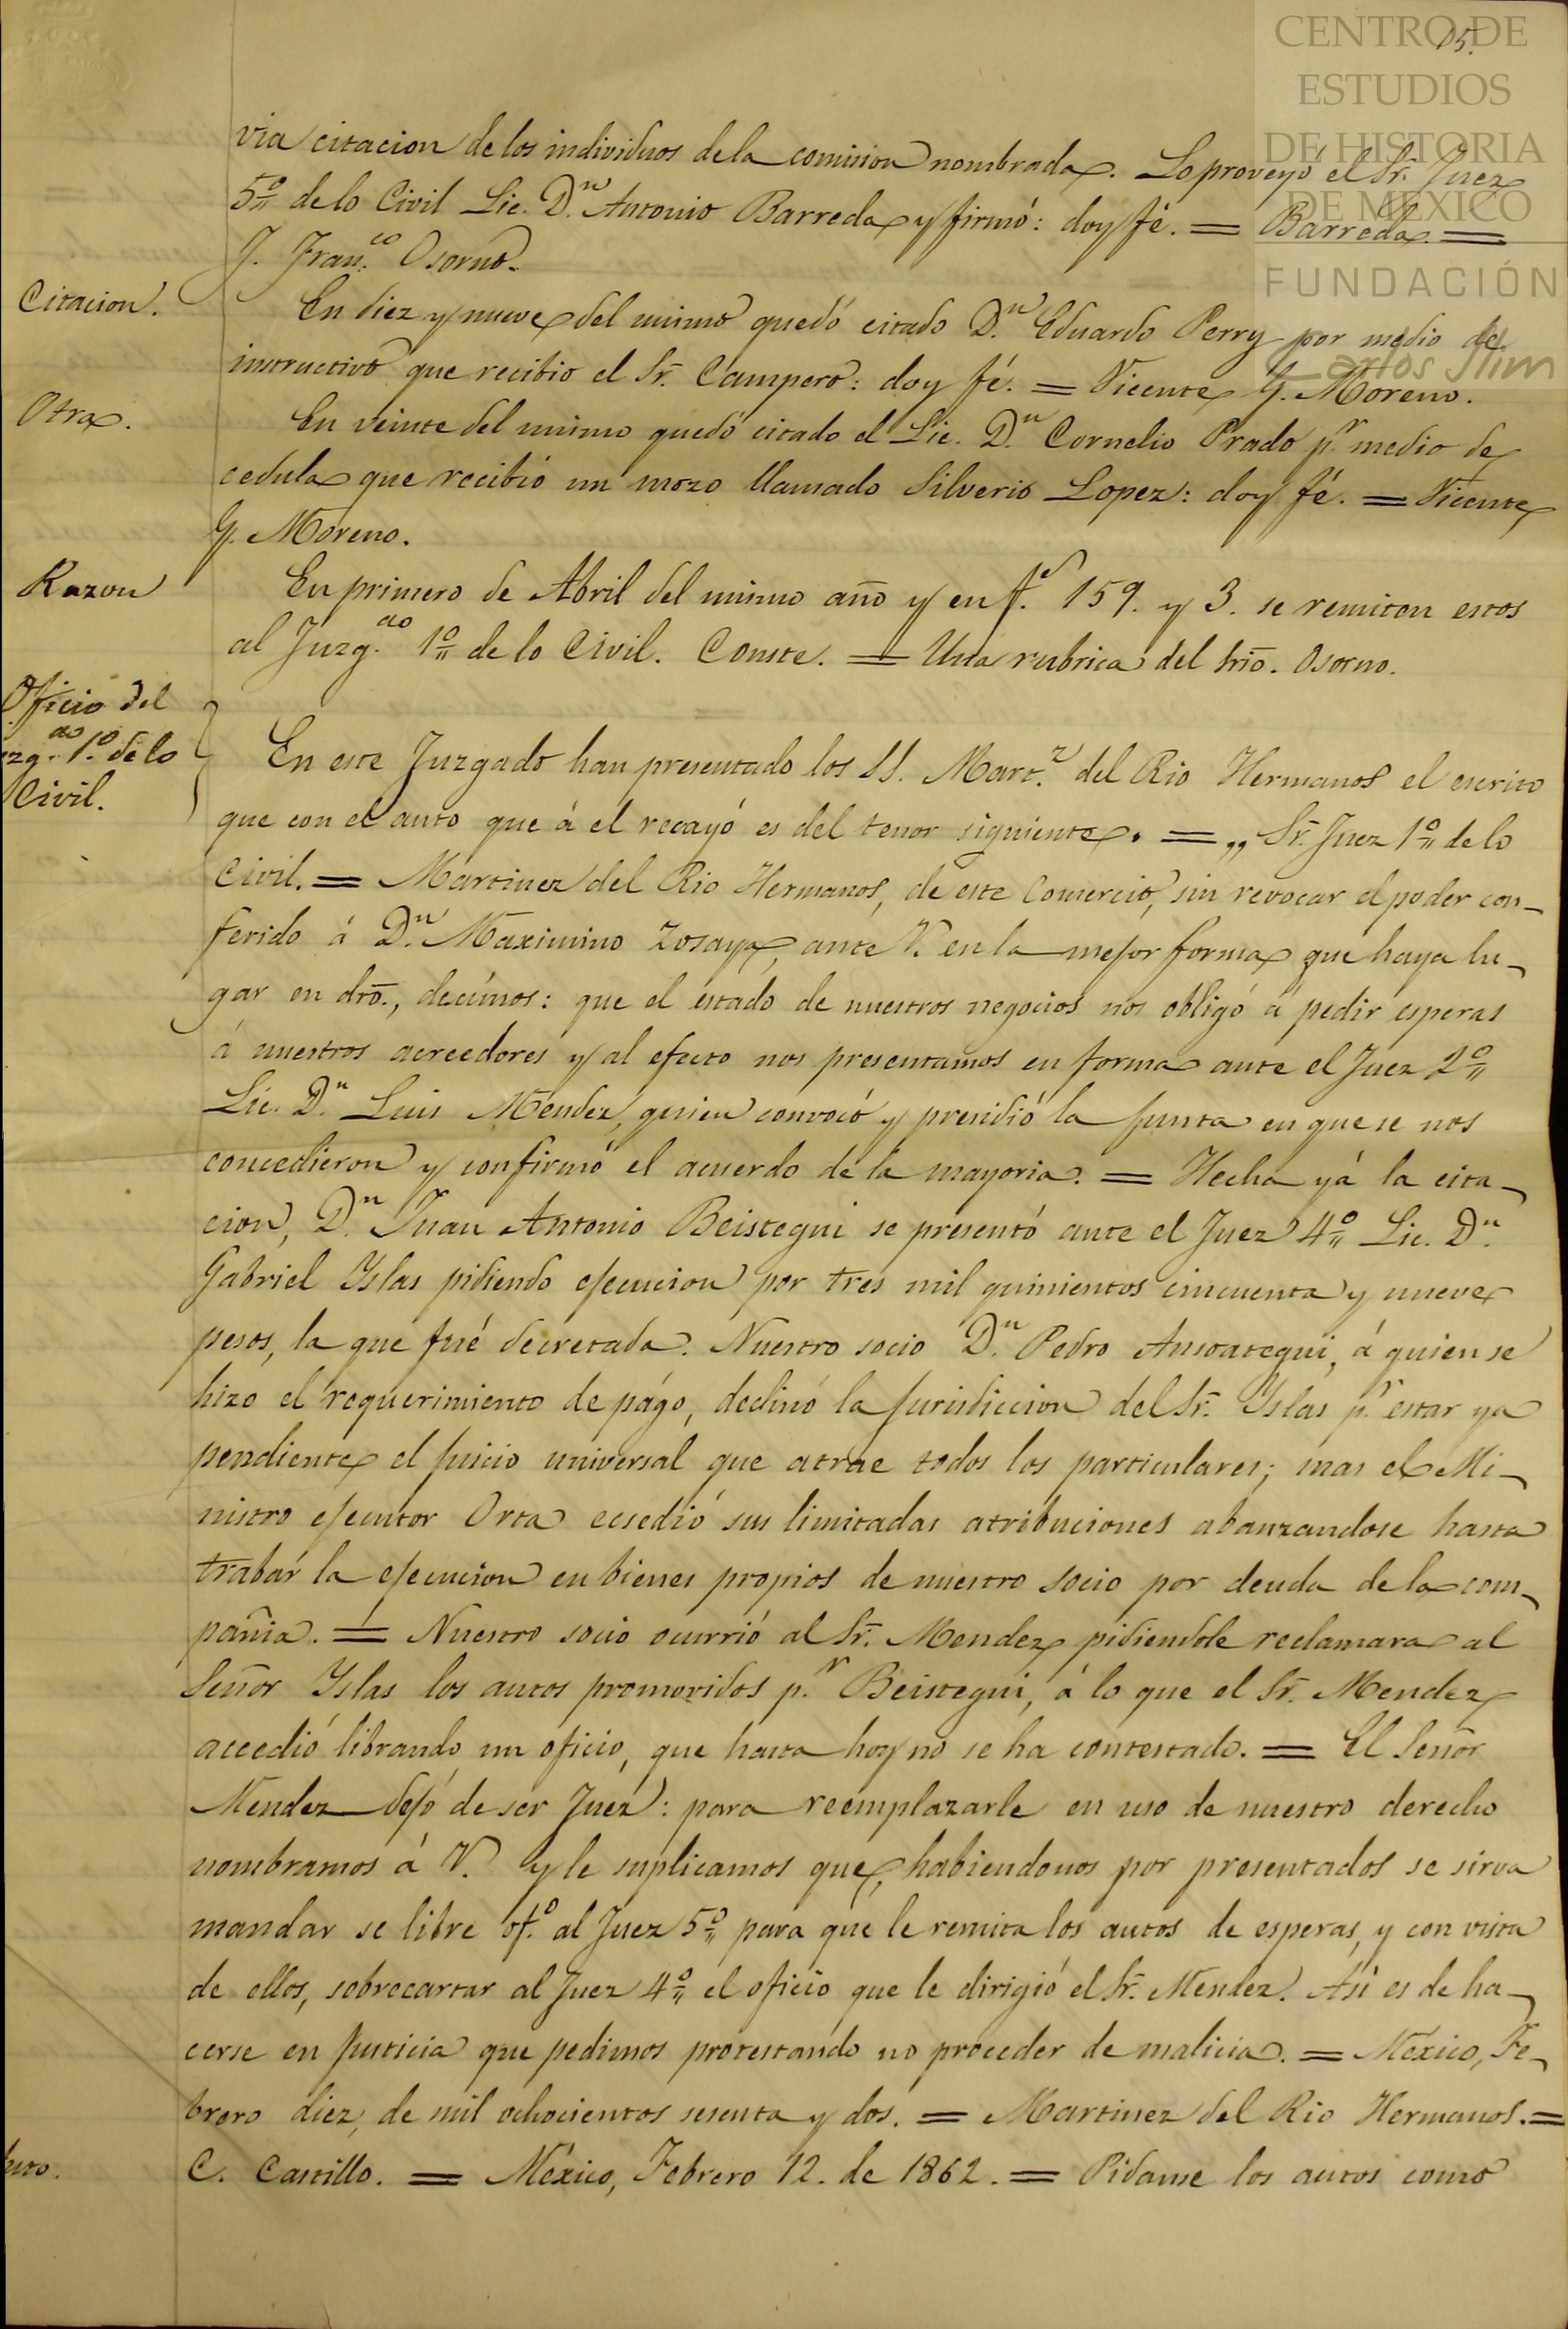 CENTRO DE
ESTUDIOS
DE HISTORIA
DE MÉXICO
FUNDACIÓN
Carlos Slim
15.
via citacion de los individuos de la comision nombrada. Lo proveyó el Sr. Juez
5º de lo Civil Lic. Dn. Antonio Barreda y firmó: doy fé. = Barreda. =
J. Franco. Osorno.
Citacion.
En diez y nueve del mismo quedó citado Dn. Eduardo Perry por medio de
instructivo que recibio el Sr. Campero: doy fé. = Vicente G. Moreno.
Otra.
En veinte del mismo quedó citado el Lic. Dn. Cornelio Prado pr. medio de
cedula que recibió un mozo llamado Silverio Lopez: doy fé. = Vicente
G. Moreno.
Razon
En primero de Abril del mismo año y en fs. 159. y 3. se remiten estos
al Juzgdo. 1º de lo Civil. Conste. = Una rubrica del Srio. Osorno.
Oficio del
zgdo. 1º de lo
Civil.
En este Juzgado han presentado los SS. Martz. del Rio Hermanos el escrito
que con el auto que á el recayó es del tenor siguiente. = „ Sr. Juez 1º de lo
Civil. = Martinez del Rio Hermanos, de este Comercio, sin revocar el poder con-
ferido á Dn. Maximino Zosaya, ante V. en la mejor forma que haya lu-
gar en dro., decímos: que el estado de nuestros negocios nos obligó á pedir esperas
á nuestros acreedores y al efecto nos presentamos en forma ante el Juez 2º
Lic. Dn. Luis Mendez, quien convocó y presidió la junta en que se nos
concedieron y confirmó el acuerdo de la mayoria. = Hecha yá la cita-
cion, Dn. Juan Antonio Beistegui se presentó ante el Juez 4º Lic. Dn.
Gabriel Yslas pidiendo ejecucion por tres mil quinientos cincuenta y nueve
pesos, la que fué decretada. Nuestro socio Dn. Pedro Ansoategui, á quien se
hizo el requerimiento de págo, declinó la jurisdiccion del Sr. Yslas pr. estar ya
pendiente el juicio universal que atrae todos los particulares; mas el Mi-
nistro ejecutor Orta ecsedió sus limitadas atribuciones abanzandose hasta
trabar la ejecucion en bienes propios de nuestro socio por deuda de la com-
pañia. = Nuestro socio ocurrió al Sr. Mendez pidiendole reclamara al
Señor Yslas los autos promovidos pr. Beistegui, á lo que el Sr. Mendez
accedió librando un oficio, que hasta hoy no se ha contestado. = El Señor
Mendez dejó de ser Juez: para reemplazarle en uso de nuestro derecho
nombramos á V. y le suplicamos que, habiendonos por presentados se sirva
mandar se libre ofo. al Juez 5º para que le remita los autos de esperas, y con vista
de ellos, sobrecartar al Juez 4º el oficio que le dirigió el Sr. Mendez. Así es de ha-
cerse en justicia que pedimos protestando no proceder de malicia. = México, Fe-
brero diez, de mil ochocientos sesenta y dos. = Martinez del Rio Hermanos. =
C. Castillo. = México, Febrero 12. de 1862. = Pidanse los autos como